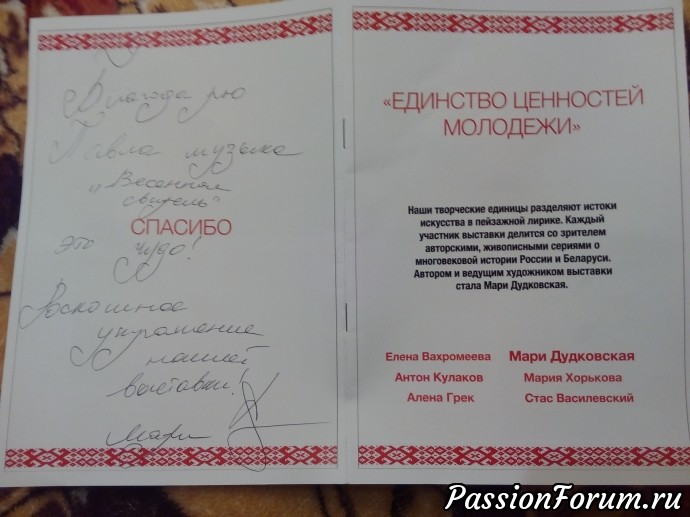 Благодарю
Павла музыка
"Весенняя
свирель"
СПАСИБО
это чудо!
Роскошное
украшение
нашей
выставки!
Мари
«ЕДИНСТВО ЦЕННОСТЕЙ
МОЛОДЕЖИ»
Наши творческие единицы разделяют истоки
искусства в пейзажной лирике. Каждый
участник выставки делится со зрителем
авторскими, живописными сериями о
многовековой истории России и Беларуси.
Автором и ведущим художником выставки
стала Мари Дудковская.
Елена Вахромеева Мари Дудковская
Антон Кулаков Мария Хорькова
Алена Грек Стас Василевский
PassionForum.ru